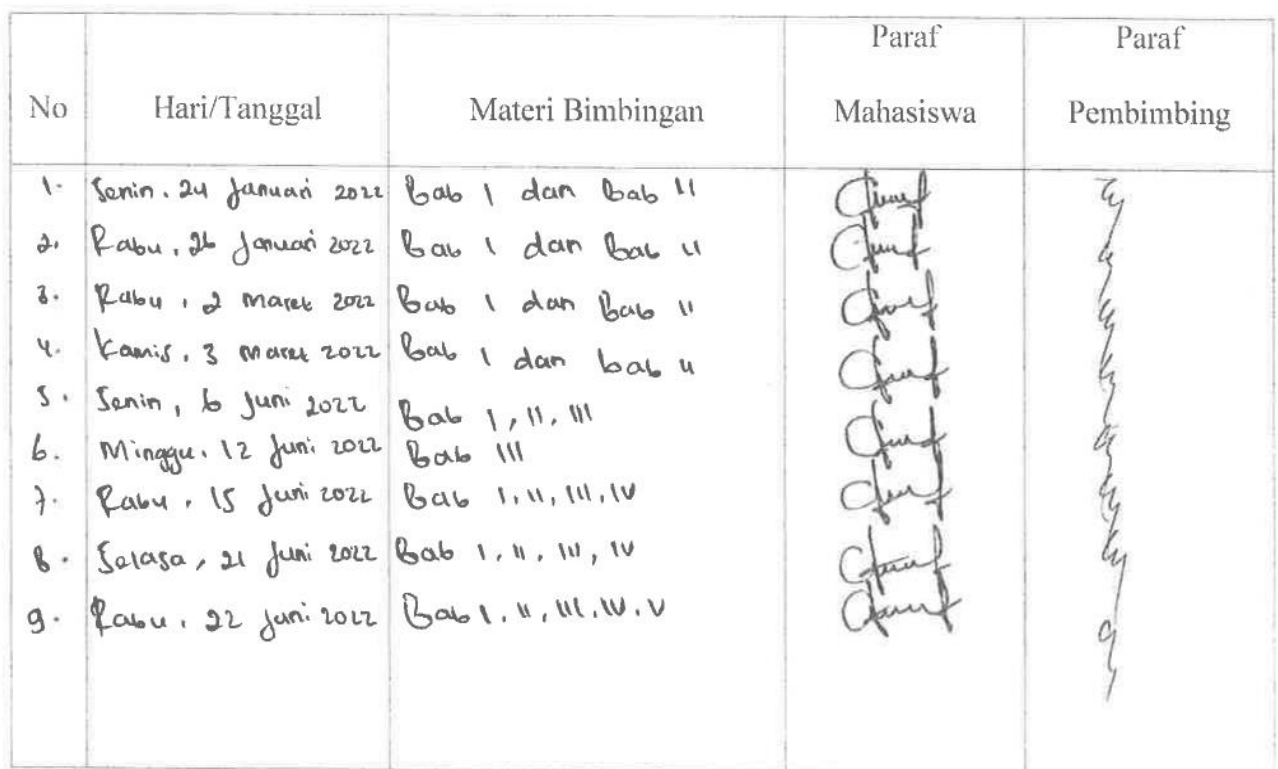 No Hari/Tanggal Materi Bimbingan Paraf Mahasiswa Paraf Pembimbing
1. Senin. 24 Januari 2022 Bab I dan Bab II
2. Rabu, 26 Januari 2022 Bab I dan Bab II
3. Rabu, 2 Maret 2022 Bab I dan Bab II
4. Kamis, 3 Maret 2022 Bab I dan bab II
5. Senin, 6 Juni 2022 Bab I, II, III
6. Minggu, 12 Juni 2022 Bab III
7. Rabu, 15 Juni 2022 Bab I, II, III, IV
8. Selasa, 21 Juni 2022 Bab I, II, III, IV
9. Rabu, 22 Juni 2022 Bab I, II, III, IV, V